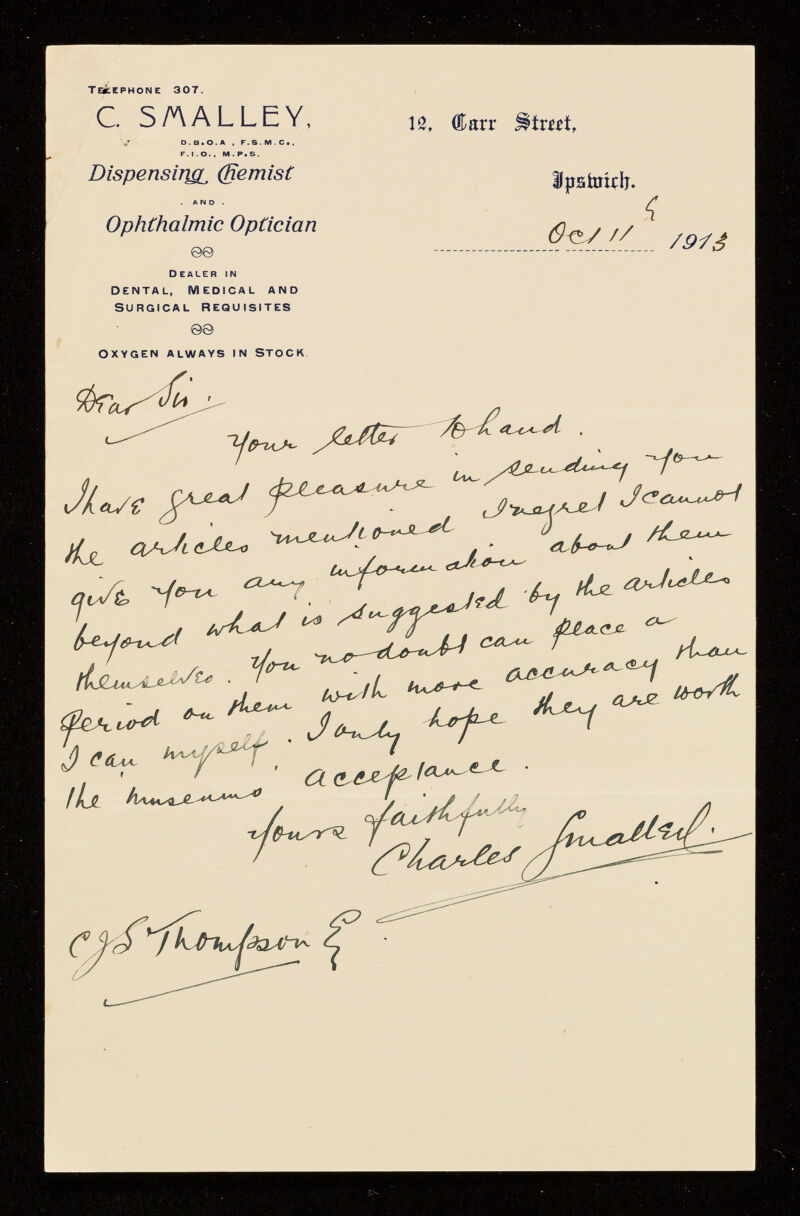 TELEPHONE 307.
C. SMALLEY,
D.B.O.A., F.S.M.C.,
F.I.O., M.P.S.
Dispensing Chemist
AND
Ophthalmic Optician
DEALER IN
DENTAL, MEDICAL AND
SURGICAL REQUISITES
OXYGEN ALWAYS IN STOCK.
12, Carr Street,
Ipswich.
Oct 11 1913
Dear Sir.
Your letter to hand.
I have great pleasure in sending you
the articles mentioned I regret I cannot
give you any information about them
beyond what is suggested by the articles
themselves. You no doubt can place a
period on them with more accuracy than
I can myself. I only hope they are worth
the 'museums' acceptance.
Yours faithfully
Charles Smalley.
C J S Thompson E